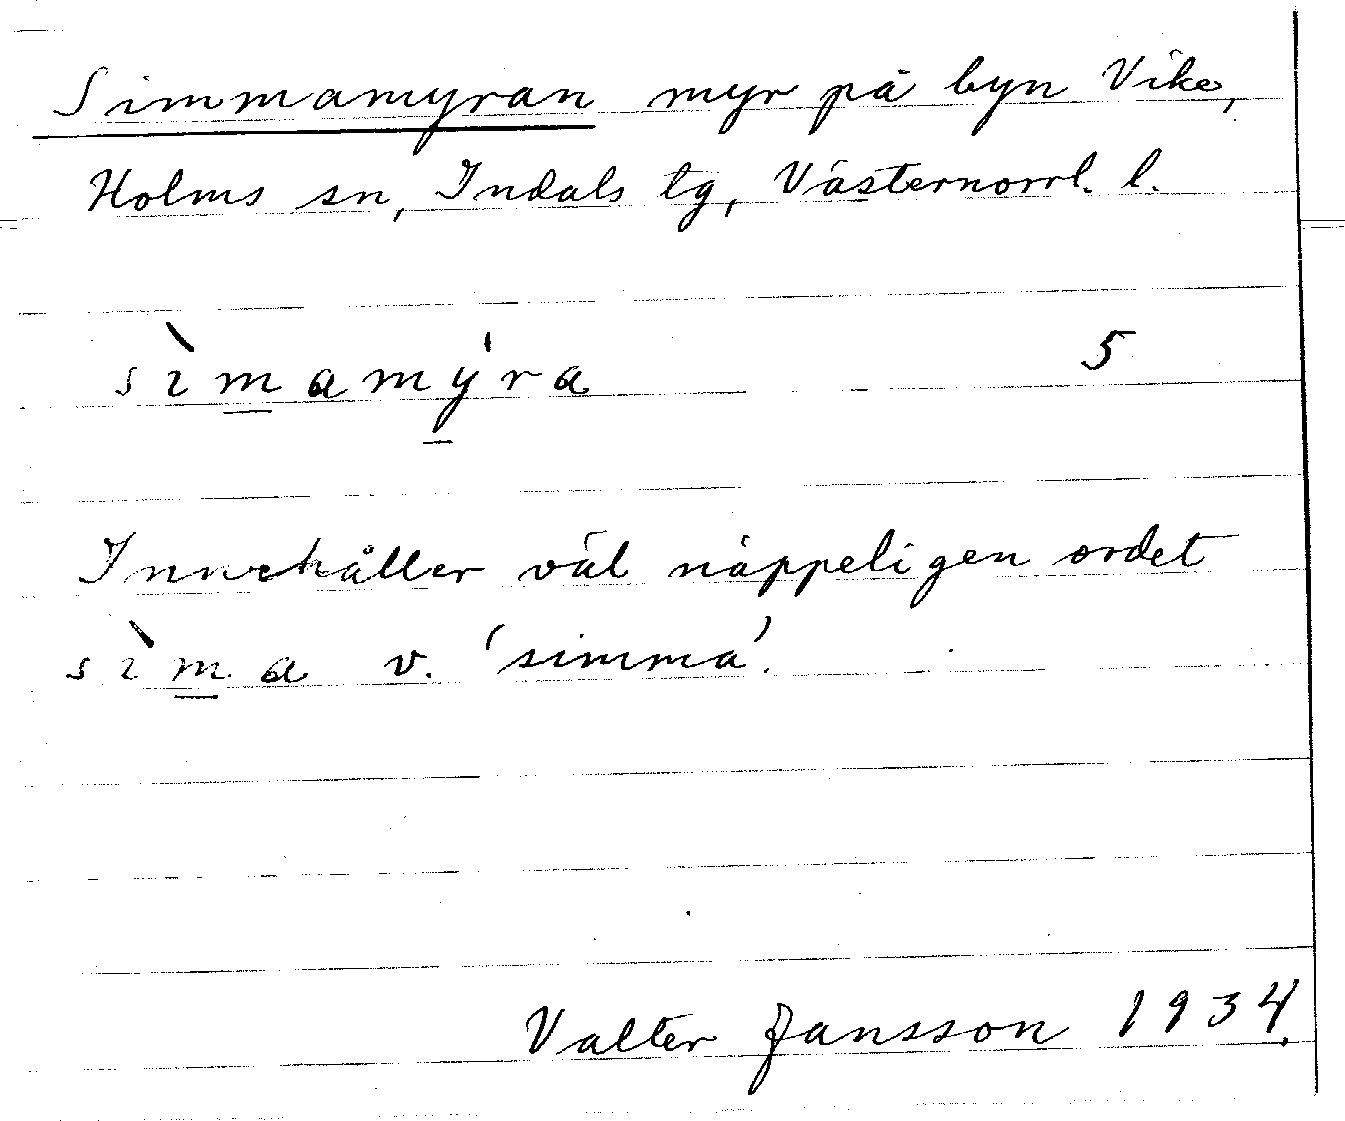 Simmamyran myr på byn Vike,
Holms sn, Indals tg, Västernorrl. l.
sìmamy̍ra 5
Innehåller väl näppeligen ordet
sìma v. 'simma'.
Valter Jansson 1934.